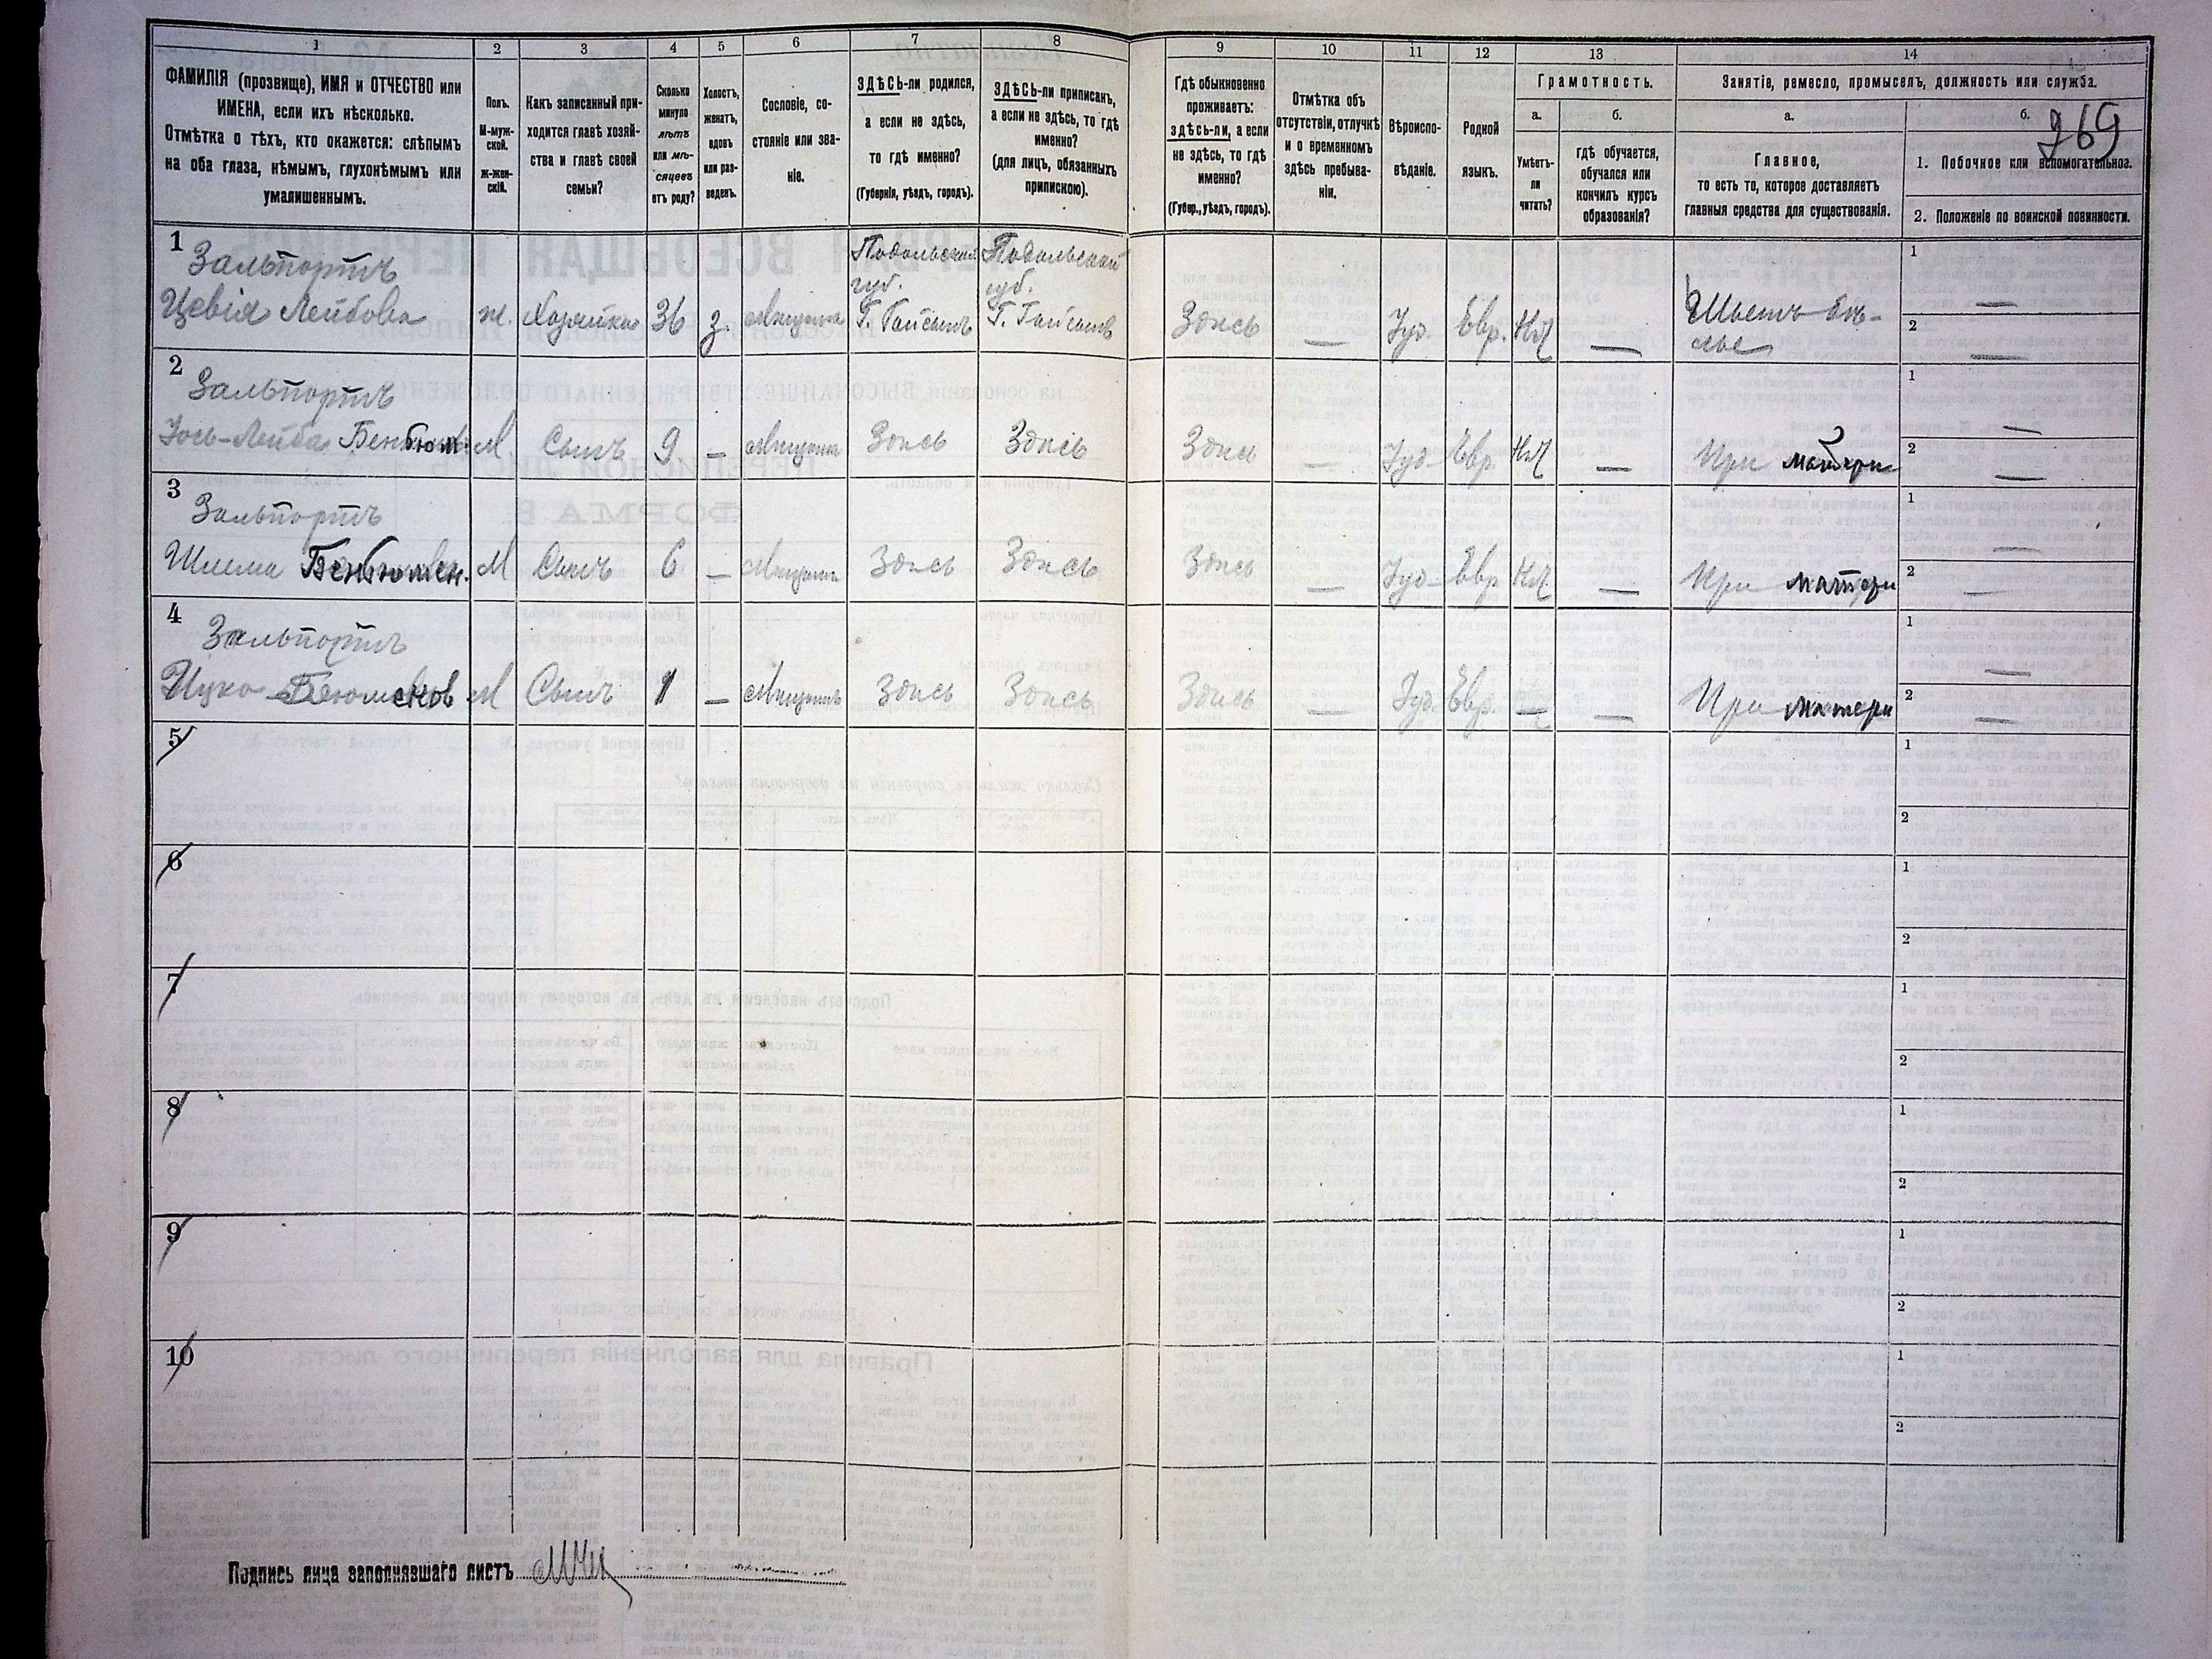 1 2 3 4 5 6 7 8 9 10 11 12 13 14
ФАМИЛІЯ (прозвище), ИМЯ и ОТЧЕСТВО или
ИМЕНА, если ихъ нѣсколько.
Отмѣтка о тѣхъ, кто окажется: слѣпымъ
на оба глаза, нѣмымъ, глухонѣмымъ или
умалишеннымъ.
Полъ.
М-муж-
ской.
ж-жен-
скій.
Какъ записанный при-
ходится главѣ хозяй-
ства и главѣ своей
семьи?
Сколько
минуло
лѣтъ
или мѣ-
сяцевъ
отъ роду?
Холостъ,
женатъ,
вдовъ
или раз-
веденъ.
Сословіе, со-
стояніе или зва-
ніе.
ЗДѢСЬ-ли родился,
а если не здѣсь,
то гдѣ именно?
(Губернія, уѣздъ, городъ).
ЗДѢСЬ-ли приписанъ,
а если не здѣсь, то гдѣ
именно?
(для лицъ, обязанныхъ
припискою).
Гдѣ обыкновенно
проживаетъ:
здѣсь-ли, а если
не здѣсь, то гдѣ
именно?
(Губер., уѣздъ, городъ).
Отмѣтка объ
отсутствіи, отлучкѣ
и о временномъ
здѣсь пребыва-
ніи.
Вѣроиспо-
вѣданіе.
Родной
языкъ.
Грамотность.
а.
Умѣетъ-
ли
читать?
б.
гдѣ обучается,
обучался или
кончилъ курсъ
образованія?
Занятіе, ремесло, промыселъ, должность или служба.
а.
Главное,
то есть то, которое доставляетъ
главныя средства для существованія.
б.
269
1. Побочное или вспомогательное.
2. Положеніе по воинской повинности.
1
Зальпортъ
Цевія Лейбова ж. Хозяйка 36 з. мѣщанка
Подольской
губ.
Г. Гайсинъ
Подольской
губ.
Г. Гайсинъ
Здѣсь — Іуд. Евр. Нѣт —
Шьетъ бѣ-
лье
1 —
2 —
2
Зальпортъ
Іось-Лейба Бенюм. М. Сынъ 9. — мѣщанинъ Здѣсь Здѣсь Здѣсь — Іуд. Евр. Нѣт — При матери
1 —
2 —
3
Зальпортъ
Шлема Бенюмен. М Сынъ 6 — мѣщанинъ Здѣсь Здѣсь Здѣсь — Іуд. Евр Нѣт — При матери
1 —
2 —
4
Зальпортъ
Ицко Бенюменов М Сынъ 1 — мѣщанинъ Здѣсь Здѣсь Здѣсь — Іуд. Евр. — — При матери
1 —
2 —
5
1
2
6
1
2
7
1
2
8
1
2
9
1
2
10
1
2
Подпись лица заполнявшаго листъ